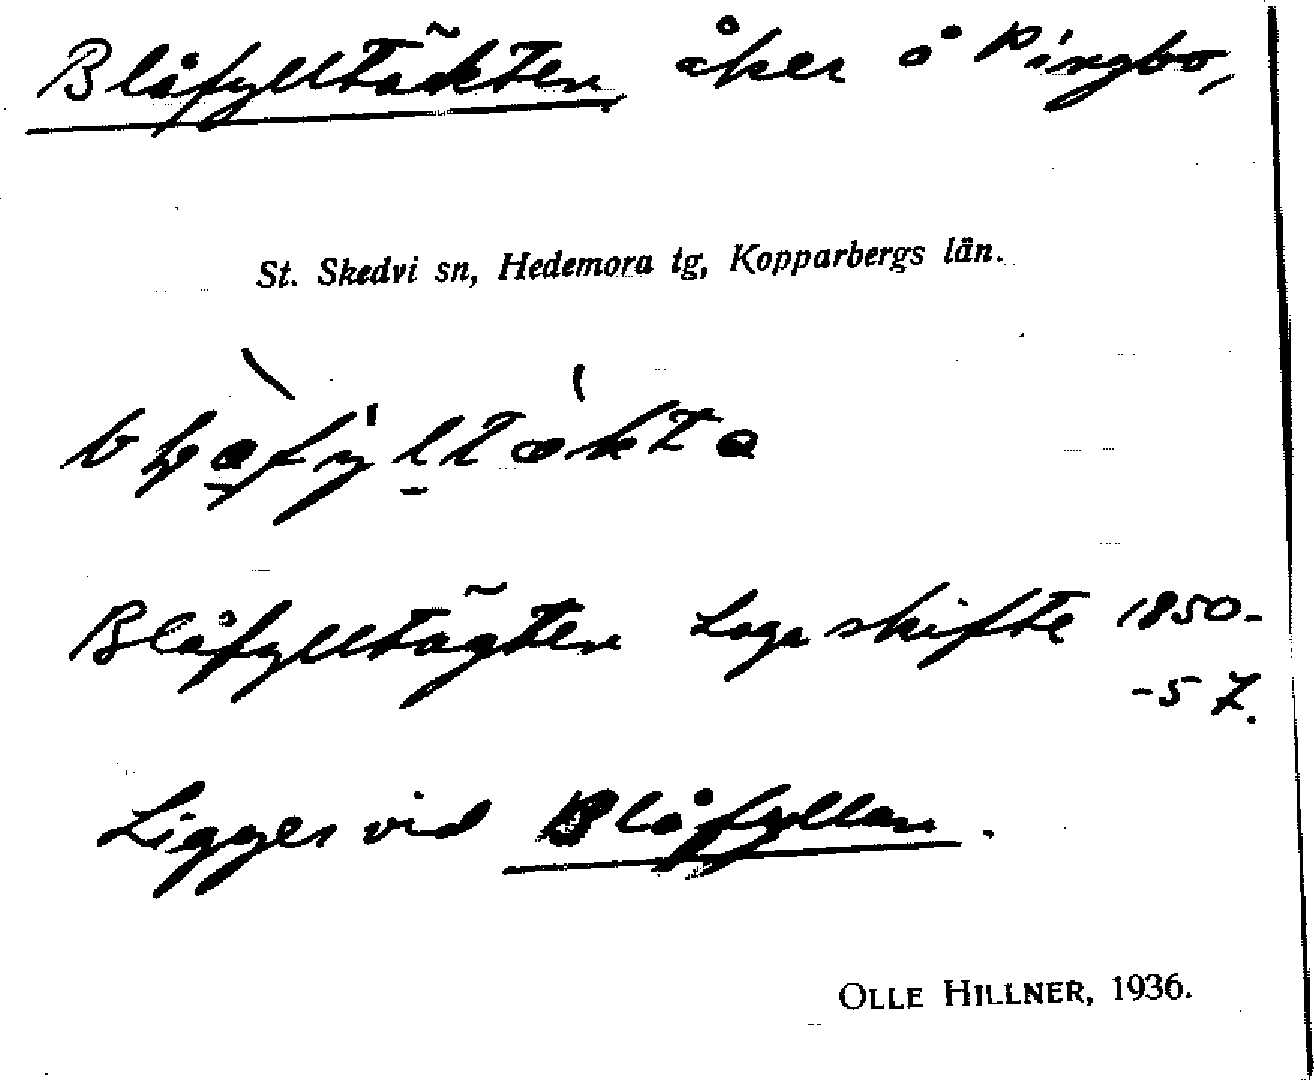 Blåfylltäkten åker å Pingbo,
St. Skedvi sn, Hedemora tg, Kopparbergs län.
Blåfylltägten Laga skifte 1850-
-57.
Ligger vid Blåfyllan.
OLLE HILLNER, 1936.